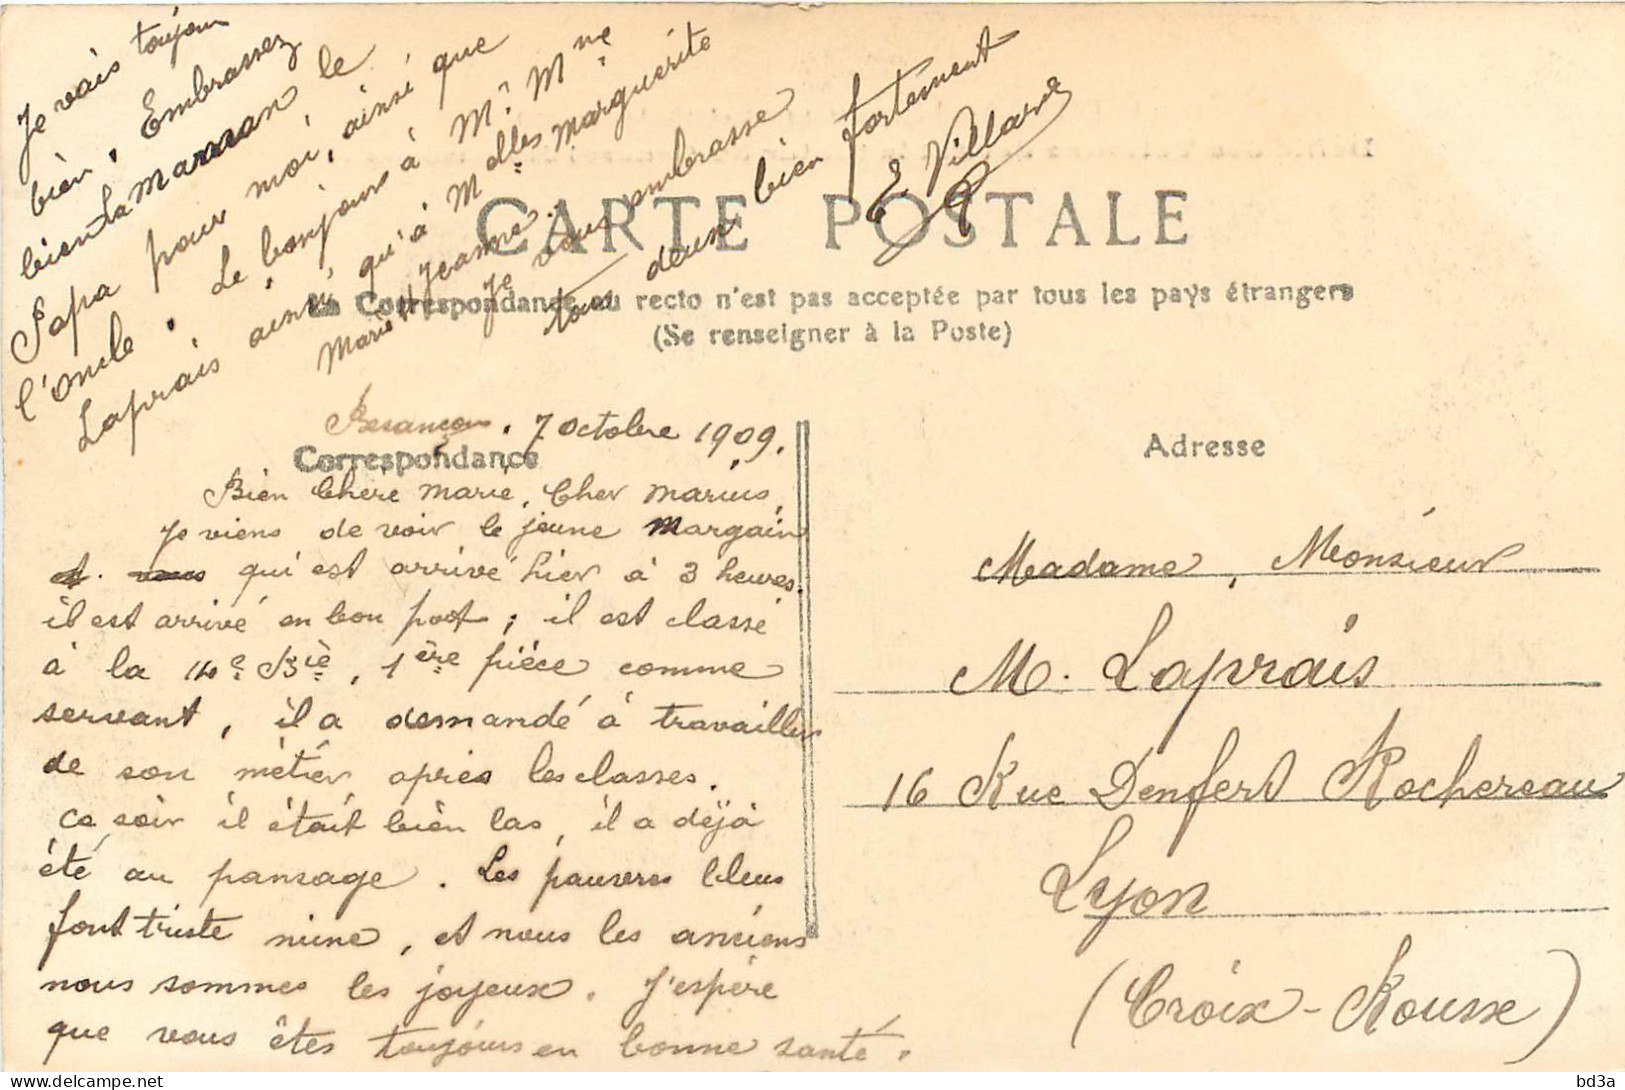 CARTE POSTALE
La Correspondance au recto n'est pas acceptée par tous les pays étrangers
(Se renseigner à la Poste)
Correspondance
Adresse
Besançon. 7 octobre 1909.
Bien Chère Marie, Cher Marius,
Je viens de voir le jeune Margain
et. vous qui est arrivé hier à 3 heures.
il est arrivé en bon port ; il est classé
à la 14e Bie, 1ère pièce comme
servant, il a demandé à travailler
de son métier après les classes.
ce soir il était bien las, il a déjà
été au pansage. Les pauvres bleus
font triste mine, et nous les anciens
nous sommes les joyeux. J'espère
que vous êtes toujours en bonne santé.
Je vais toujours
bien, Embrassez
bien la maman le
Papa pour moi, ainsi que
l'oncle. Le bonjours à Mr Mme
Laprais ainsi qu'à Melles Marguerite
Marie Jeanne. Je vous embrasse
tous deux bien fortement
E Villard
Madame, Monsieur
M. Laprais
16 Rue Denfert Rochereau
Lyon
(Croix-Rousse)
bd3a